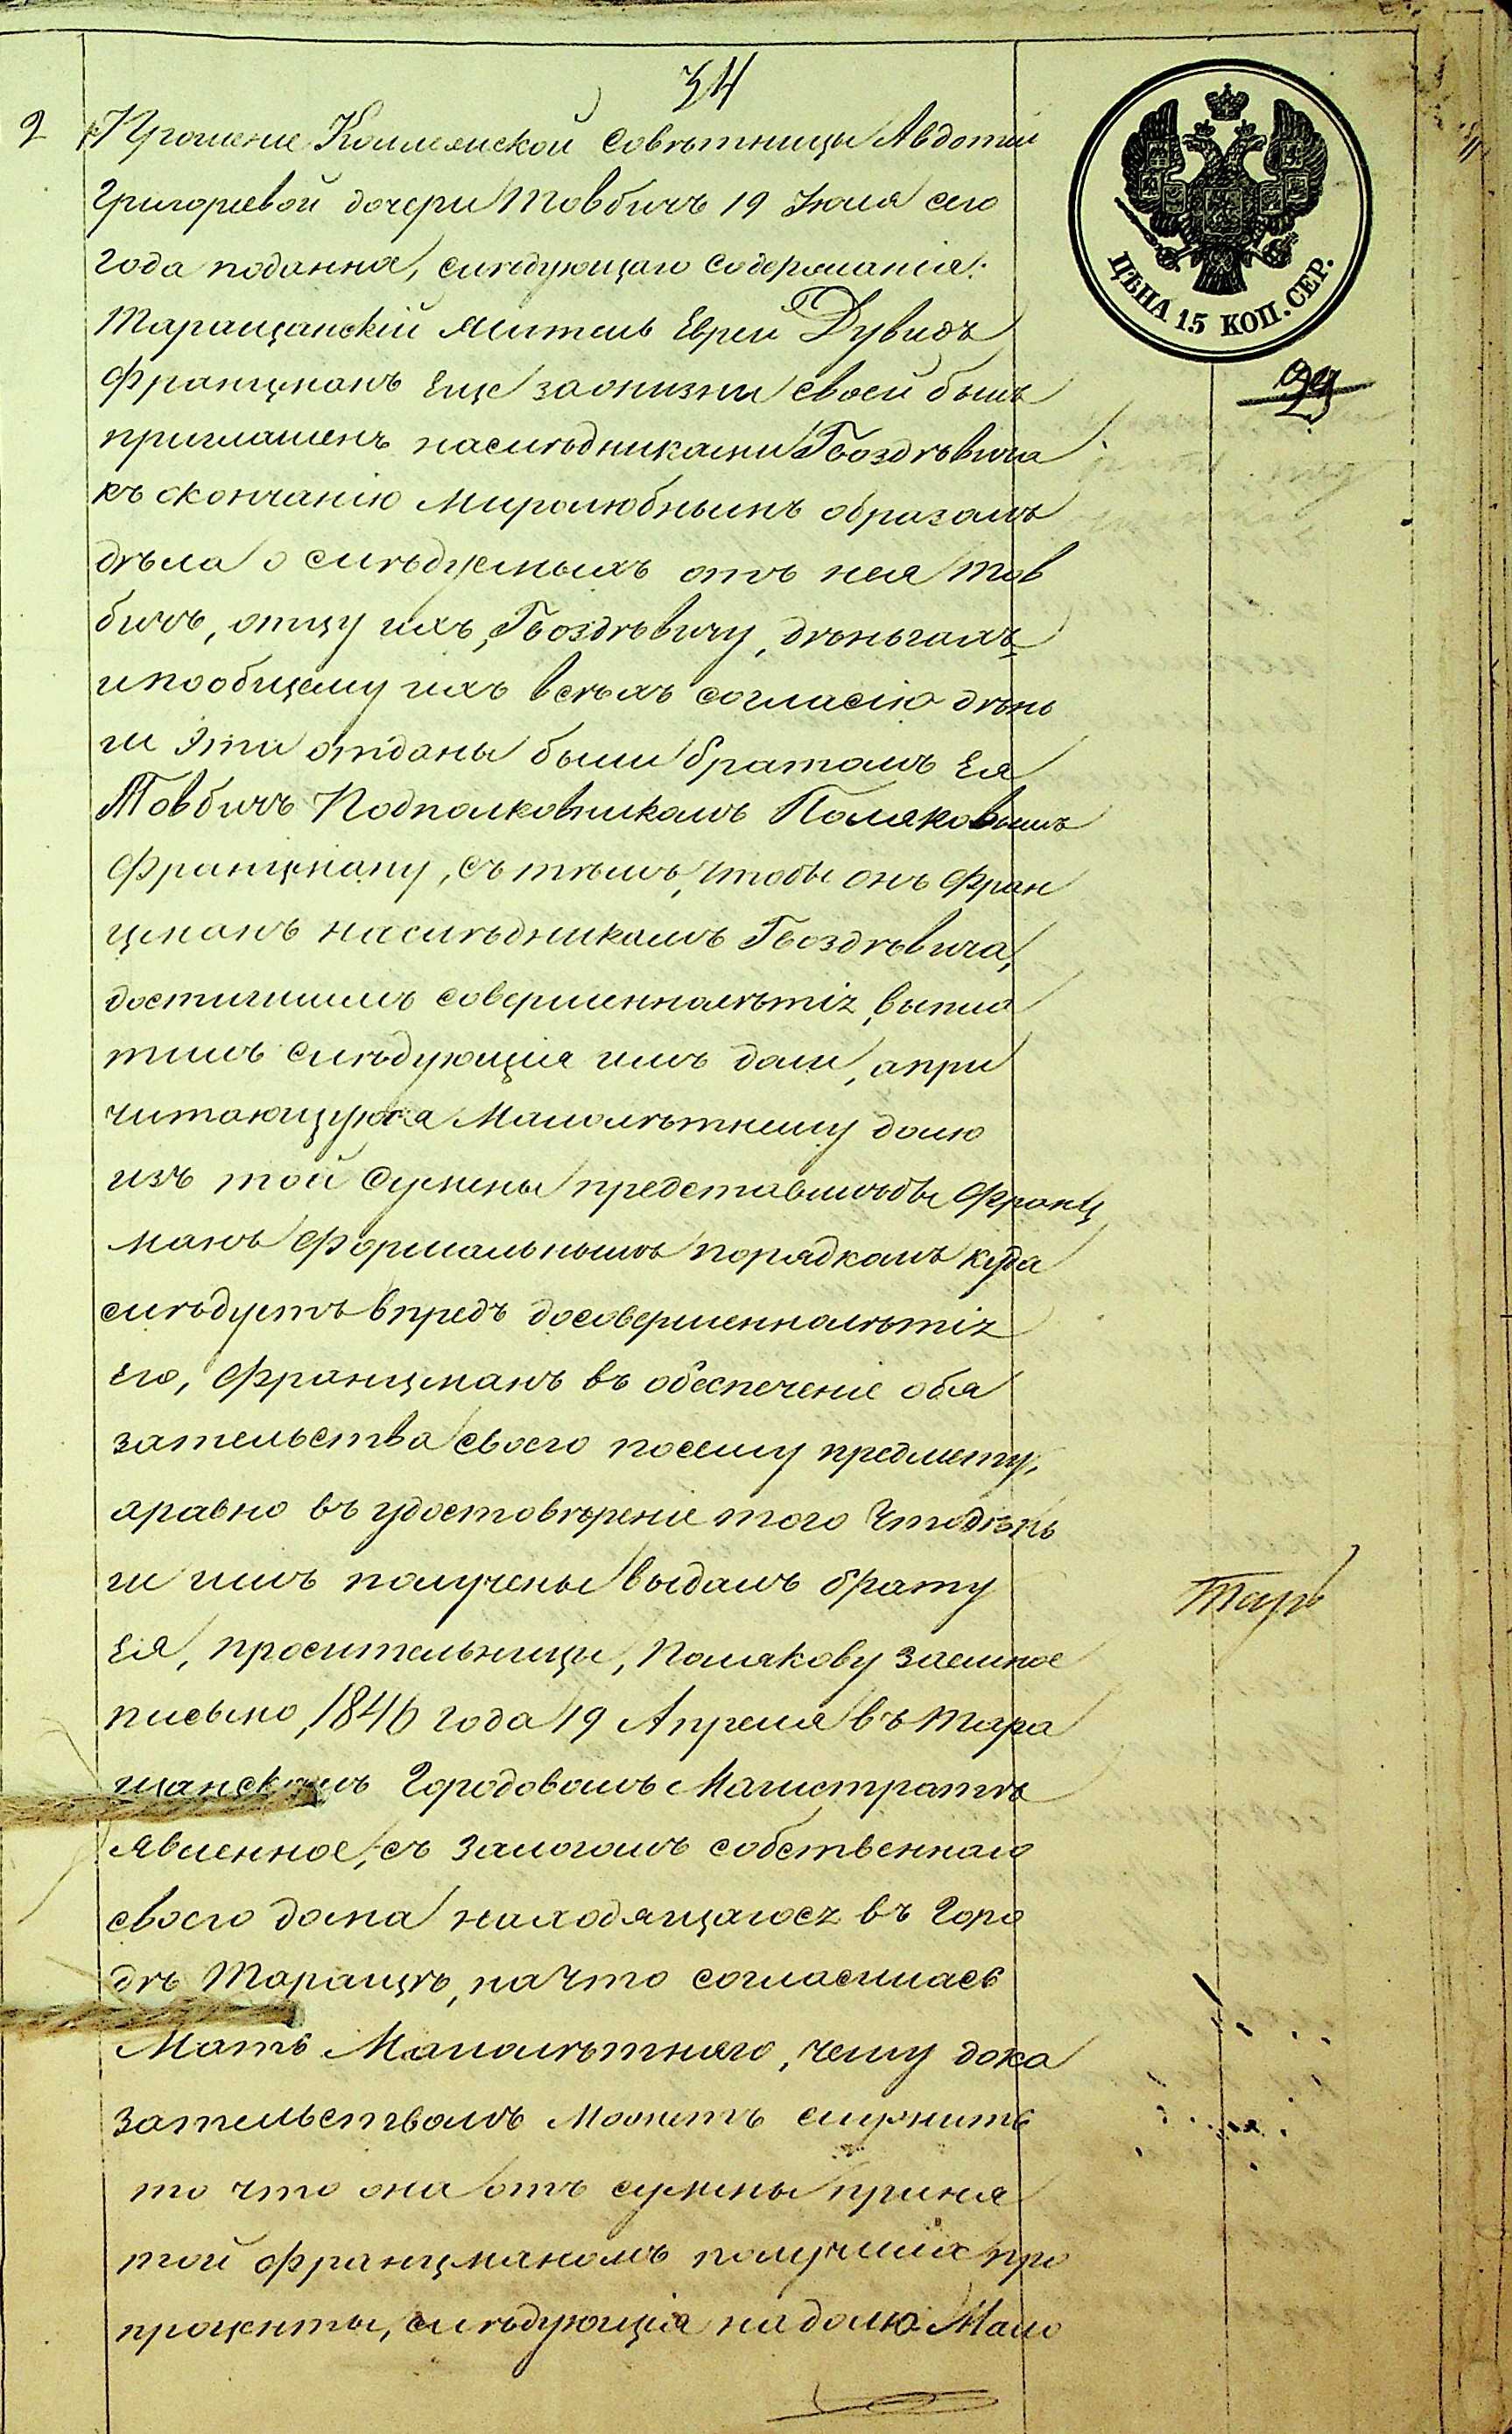 34
2 Прошеніе Коллежской Совѣтницы Авдотіи
Григорьевой дочери Товбичъ 19 Іюля сего
года поданная, слѣдующаго содержанія:
Таращанскій житель Еврей Дувидъ
Францманъ Еще зажизни своей былъ
приглашенъ наслѣдниками Гвоздѣвича
къ окончанію миролюбнымъ образомъ
дѣла о слѣдуемыхъ отъ нея Тов
бичъ, отцу ихъ, Гвоздѣвичу, дѣньгахъ
ипообщему ихъ всѣхъ согласію дѣнь
ги эти отданы были братомъ Ея
Товбичъ Подполковникомъ Поляковымъ
Францману, съ тѣмъ, чтобы онъ Фран
цманъ наслѣдникамъ Гвоздѣвича,
достигшимъ совершеннолѣтія, выпла
тилъ слѣдующія имъ доли, апри
читающуюся Малолѣтнему долю
изъ той суммы представилъбы Франц
манъ Формальнымъ порядкомъ куда
слѣдуетъ впредъ досовершеннолѣтія
его, Францманъ въ обеспеченіе обя
зательства своего посему предмету,
аравно въ удостовѣреніе того Чтодѣнь
ги имъ получены выдалъ брату
Ея, просительницы, Полякову заемное
письмо, 1846 года 19 Апреля въ Тара
щанскомъ Городовомъ Магистратѣ
явленное, съ залогомъ собственнаго
своего дома находящагося въ Горо
дѣ Таращѣ, на что согласилась
Мать Малолѣтняго, чему дока
зательствомъ Можетъ служить
то что она отъ суммы приня
той Францманомъ получила про
проценты, слѣдующія надолю Мало
ЦѢНА 15 КОП. СЕР.